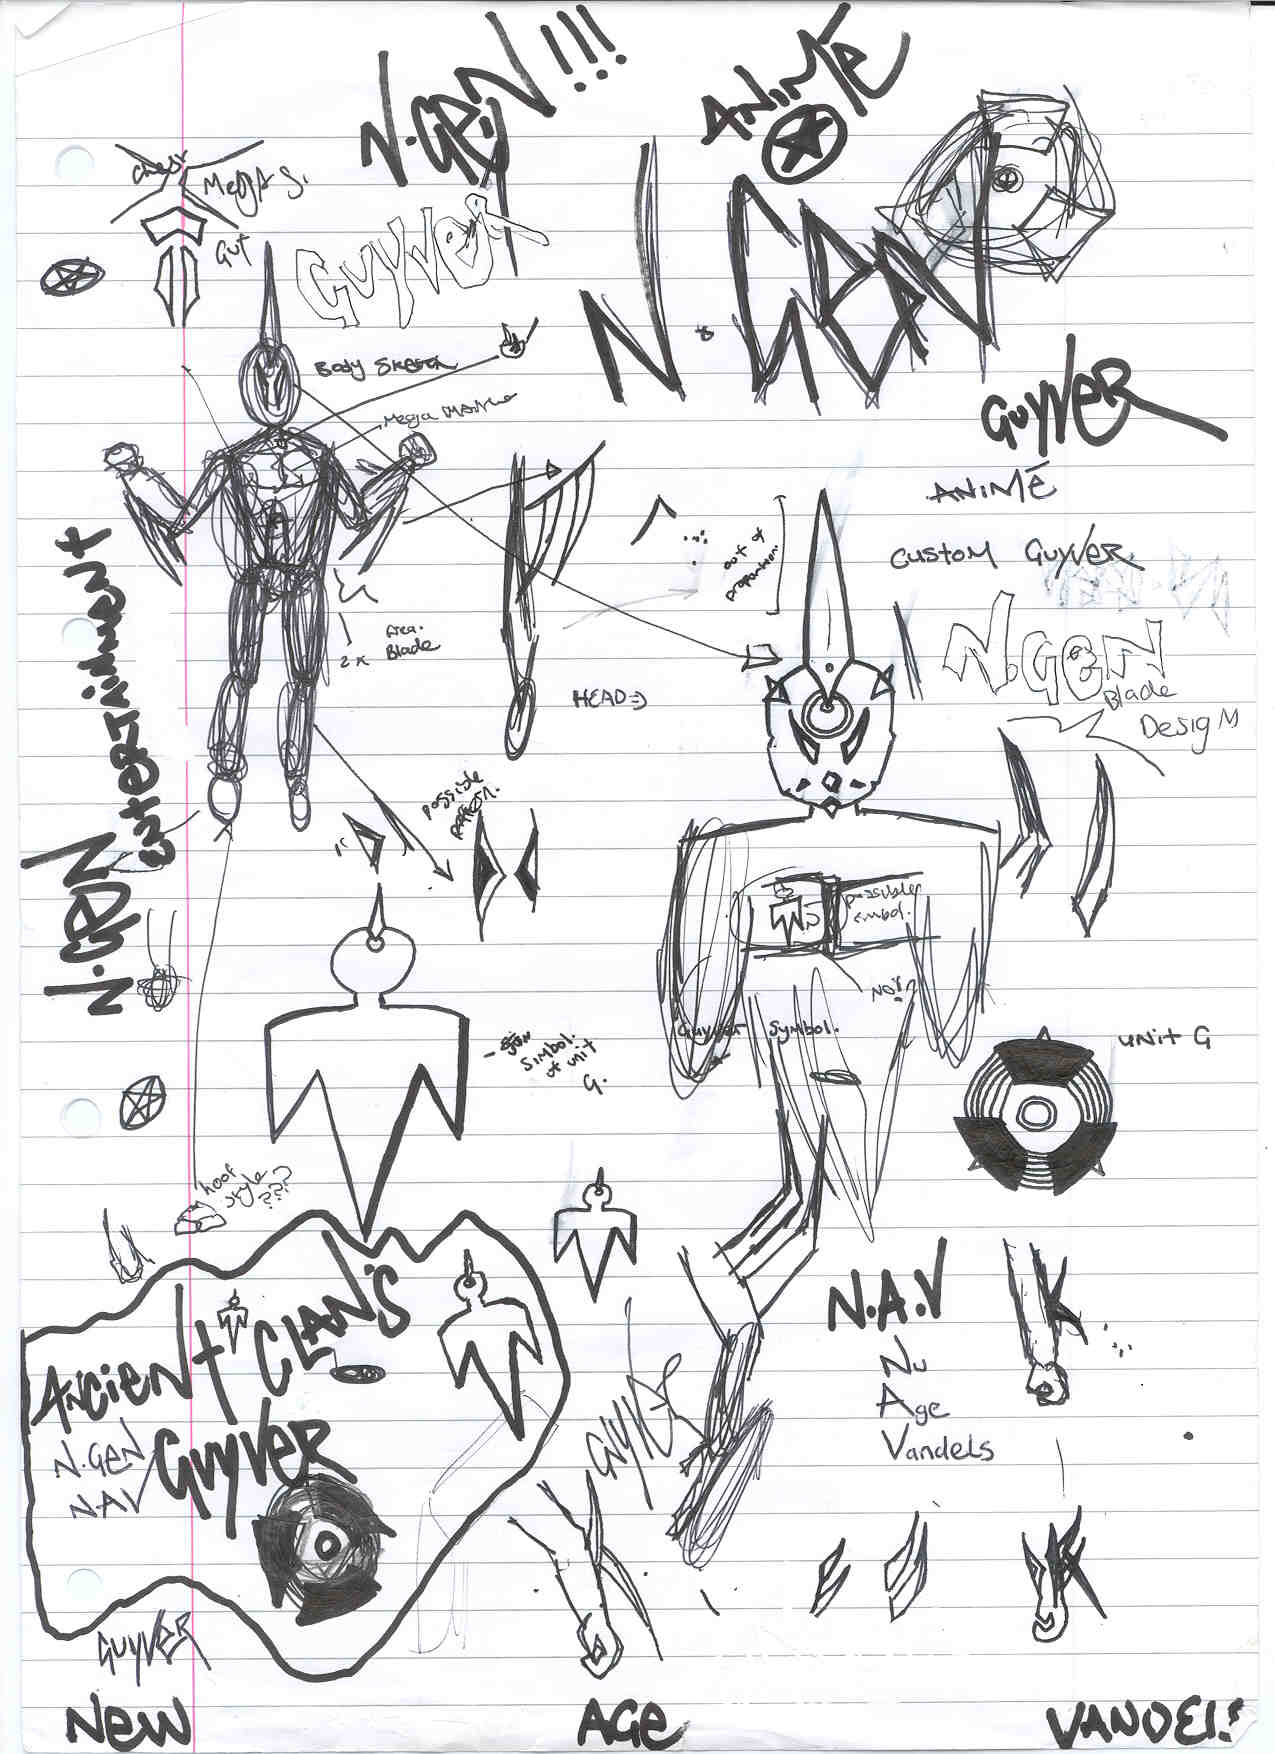 N.GEN!!!
ANIMĒ
chest
MEGA S.
GUT
GUYVER
N.GEN
BODY SKETCH
GUYVER
ANIMĒ
CUSTOM GUYVER.
out of
proportion.
N.GEN
Blade
Design
2x
Blade
HEAD
N.GEN
ENTERTAINMENT
possible
pattern.
possible
simbol.
NO!?
GUYVER SYMBOL.
UNIT G
SIMBOL.
of UNIT
G.
hoof
style
???
N.A.V
Nu
Age
Vandels
ANCIENT CLAN'S
GUYVER
N.GEN
N.A.V
GUYVER
GUYVER
NEW AGE VANDELS